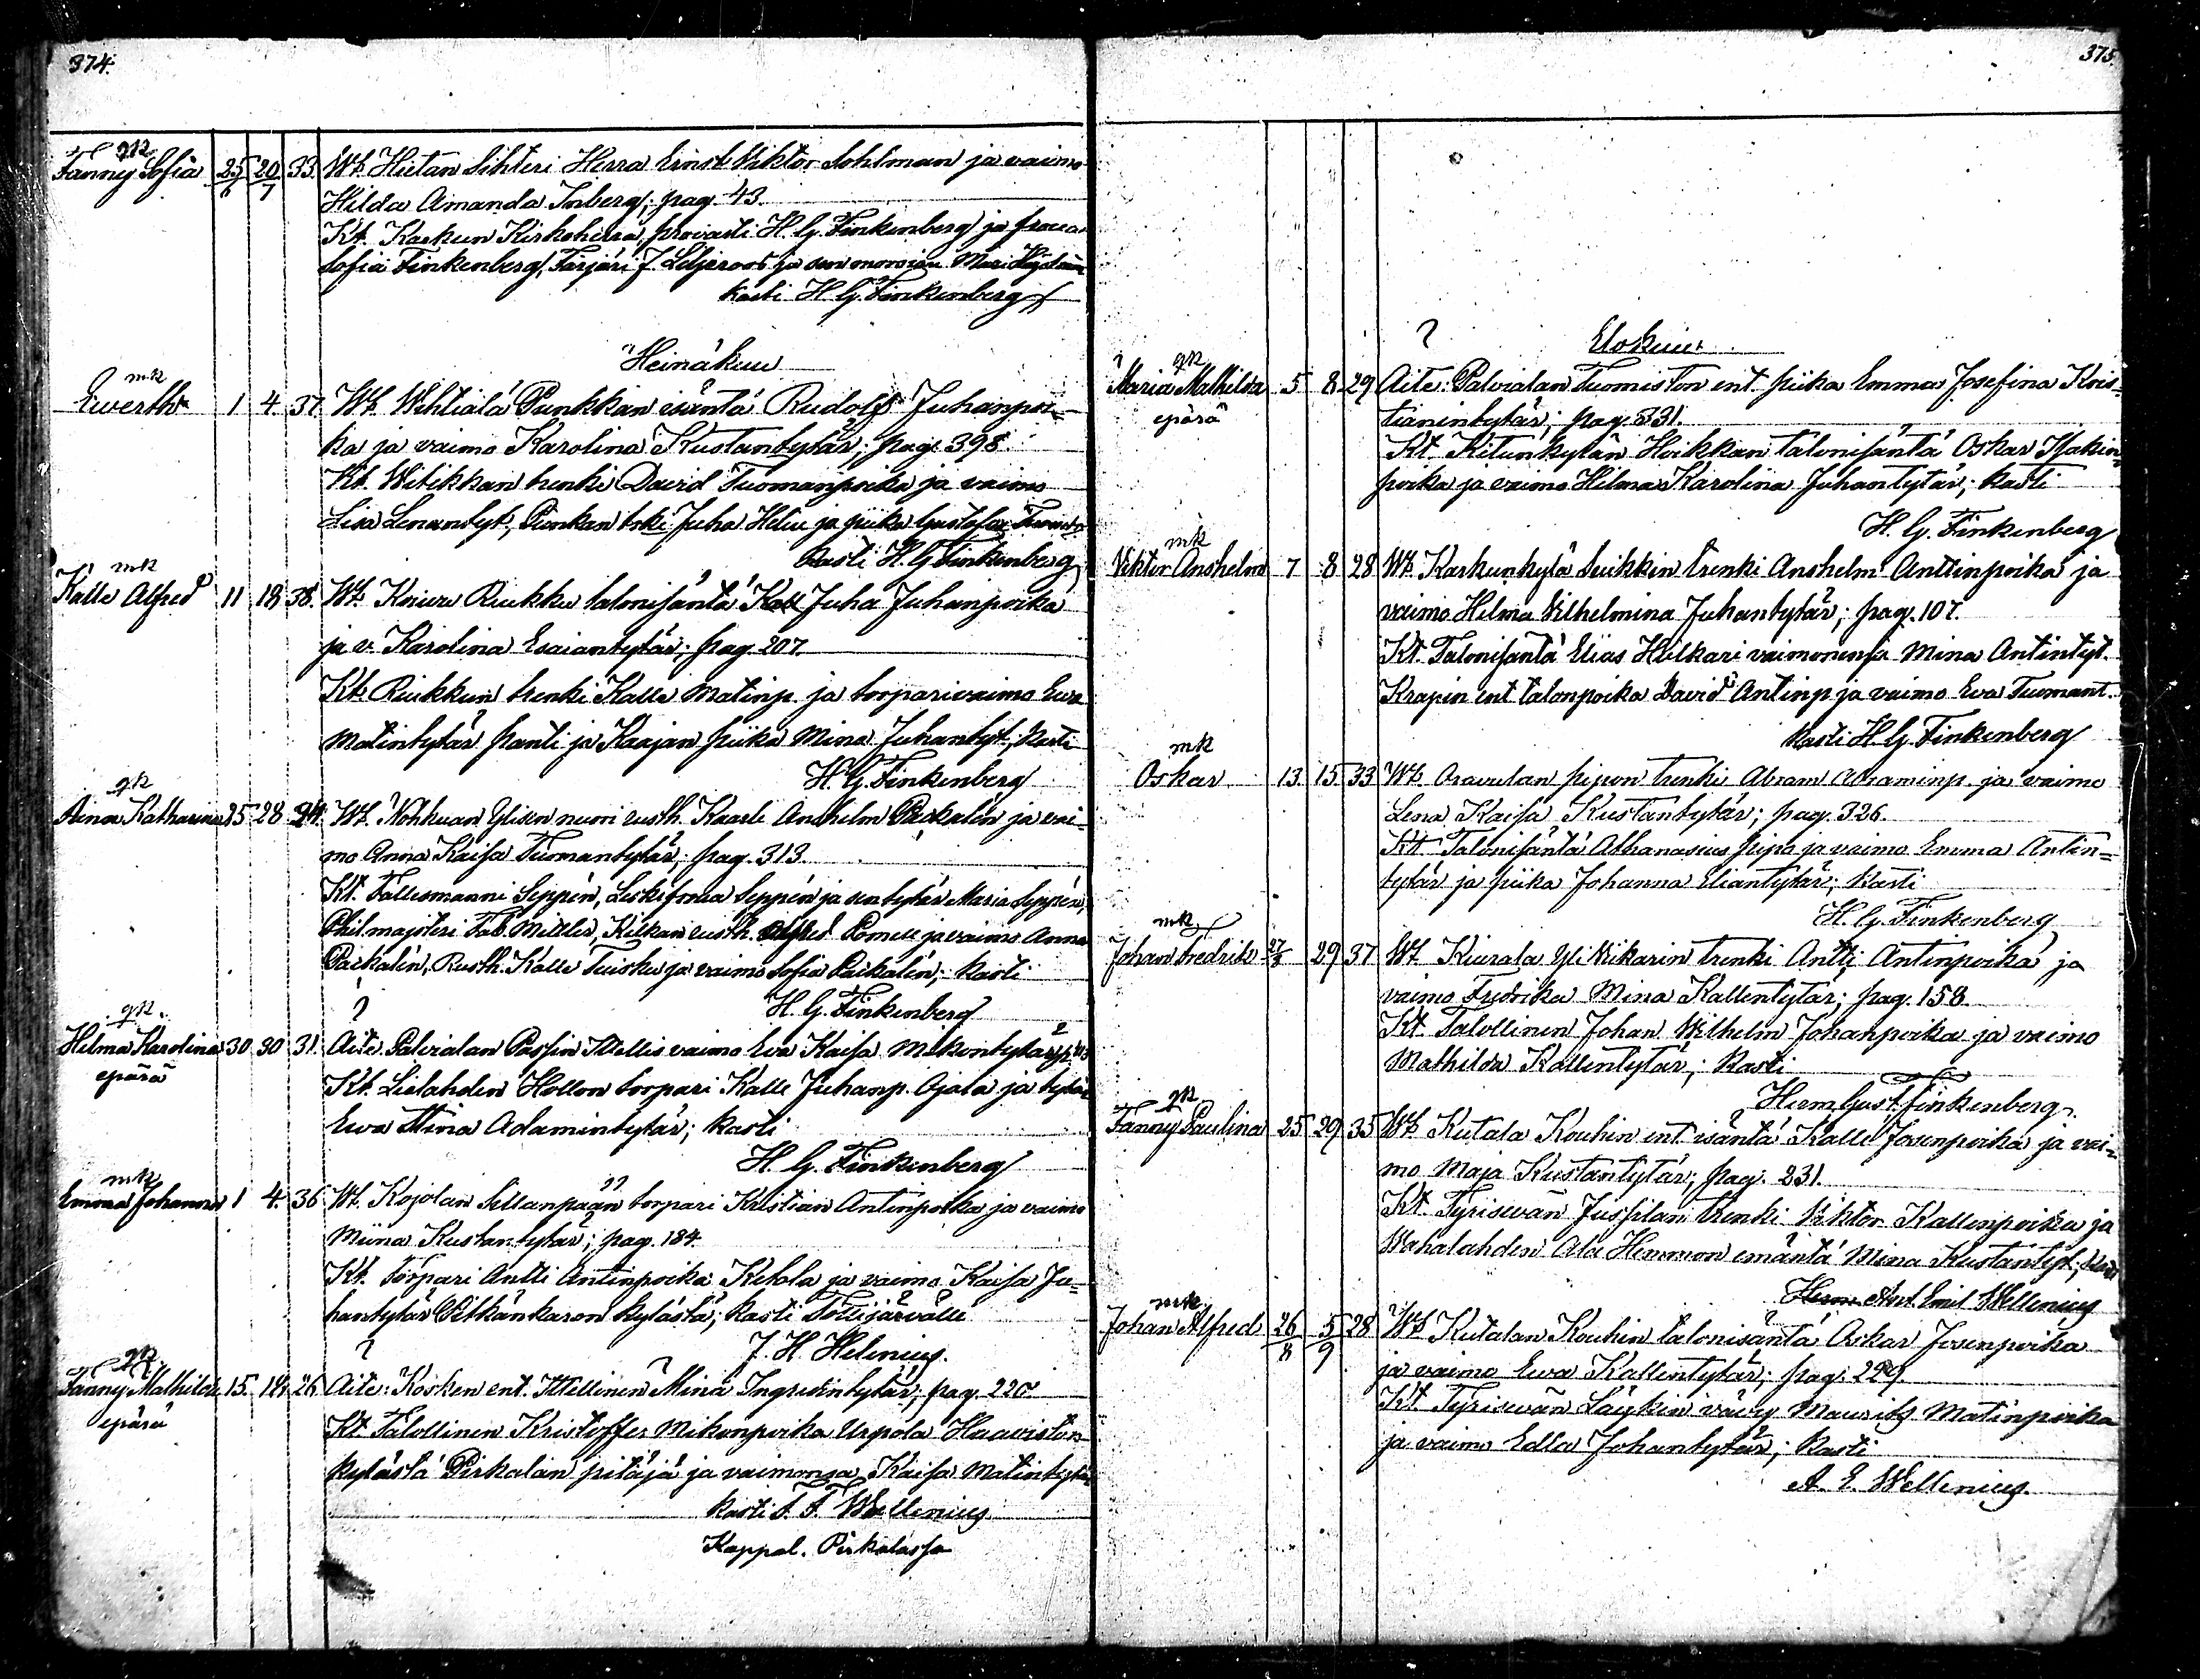 374.
gk
Fanny Sofia 25/6 20/7 33. Wt. Hietan Sihteri Herra Ernst Viktor Sohlman ja vaimo
Hilda Amanda Inberg; pag. 43.
Kt. Karkun Kirkoherra, provasti H. G. Finkenberg ja frouva
Sofia Finkenberg, Färjäri J. Liljeroos ja
kasti H. G. Finkenberg
Heinäkuu
mk
Ewerth 1 4. 37. Wt. Wihtiälä Punkkan isäntä Rudolf Juhanpoi-
ka ja vaimo Karolina Kustantytär; pag. 398.
Kt. Witikkan trenki David Tuomanpoika ja vaimo
Lisa Lenantyt, Punkan trki Juha Heliu ja piika Gustafva
kasti H. G. Finkenberg
mk
Kalle Alfred 11 18 38. Wt. Kniuu Riukku talonisäntä Kall Juha Juhanpoika
ja v. Karolina Esaiantytär; pag. 207
Kt. Riukkun trenki Kalle Matinp. ja torparivaimo Eva
Matintytär Panti ja Kaajan piika Mina Juhantyt; kasti
H. G. Finkenberg
gk
Aina Katharina 25 28 24. Wt. Nohkuan Ylisen nuori rusth. Kaarle Anshelm Packalén ja vai-
mo Anna Kaisa Tuomantytär; pag. 313.
Kt. Fallesmanni Seppén, Leskifrouva Seppén ja sen tytär Maria Seppén,
Philmajsteri Fab. Mittler, Kilkan rusth. Alfred Pomell ja vaimo Anna
Packalén, Rusth. Kalle Tuisku ja vaimo Sofia Packalén; kasti
H. G. Finkenberg
?
gk.
Helma Karolina 30 30 31. Äite Palvialan Passin Ittellis vaimo Eva Kaisa Mikontytär
epärä
Kt. Lielahden Hollon torpari Kalle Juhanp. Ojala ja tytär
Ewa Stina Adamintytär; kasti
H. G. Finkenberg
mk
Emma Johanna 1 4. 36 Wt. Kojolan Sillanpään torpari Kristian Antinpoika ja vaimo
Miina Kustantytär; pag. 184.
Kt. Torpari Antti Antinpoika Ketola ja vaimo Kaisa Ju-
hantytär Pitkänkaron kylästä; kasti Tottijärvällä
J. H. Helenius.
?
gk
Fanny Mathilda 15. 18. 26 Äite: Kosken ent. Ittellinen Mina Ingredintytär; pag. 220
epärä
Kt. Talollinen Kristoffer Mikonpoika Urpola Haaviston
kylästä Pirkalan pitäjä ja vaimonsa Kaisa Matintytär
kasti F. F. Wallenius
Kappal. Pirkalassa
375.
? Elokuu.
gk
Maria Mathilda 5 8 29 Äite: Palvialan Tuomiston ent. piika Emma Josefina Kris-
epärä
tianintytär; pag. 331.
Kt. Kitunkylän Hoikkan talonisäntä Oskar Isakin-
poika ja vaimo Hilma Karolina Juhantytär; kasti
H. G. Finkenberg
mk
Viktor Anshelm 7 8 28 Wt. Karkunkylä Seikkin trenki Anshelm Anttinpoika ja
vaimo Helma Vilhelmina Juhantytär; pag. 107.
Kt. Talonisäntä Elias Hulkari vaimonensa Mina Antintyt.
Krapin ent. talonpoika David Antinp ja vaimo Eva Tuomant.
kasti H. G. Finkenberg
mk
Oskar 13. 15. 33 Wt. Oravulan Pipon trenki Abram Abraminp. ja vaimo
Lena Kaisa Kustantytär; pag. 326.
Kt. Talonisäntä Athanasius Pipo ja vaimo Emma Antin-
tytär ja piika Johanna Eliantytär; kasti
H. G. Finkenberg
mk
Johan Fredrik 27/8 29 37 Wt. Kiurala Yli Nikarin trenki Antti Antinpoika ja
vaimo Fredrika Mina Kallentytär; pag. 158
Kt. Talollinen Johan Wilhelm Johanpoika ja vaimo
Mathilda Kallentytär; kasti
Herm. Gust. Finkenberg.
gk
Fanny Paulina 25 29 35 Wt. Kutala Kouhin ent. isäntä Kalle Josenpoika ja vai-
mo Maja Kustantytär; pag. 231.
Kt. Tyrisevän Jussilan trenki Viktor Kallenpoika ja
Wahalahden Ala Hemmon emäntä Mina Kustantyt; kasti
Herm. Axel Emil Wellenius
mk
Johan Alfred 26/8 5/9 28 Wt. Kutalan Kouhin talonisäntä Oskar Josenpoika
ja vaimo Ewa Kallentytär; pag. 229
Kt. Tyrisevän Läykin vävy Maurits Matinpoika
ja vaimo Edla Johantytär; kasti
A. E. Wellenius.